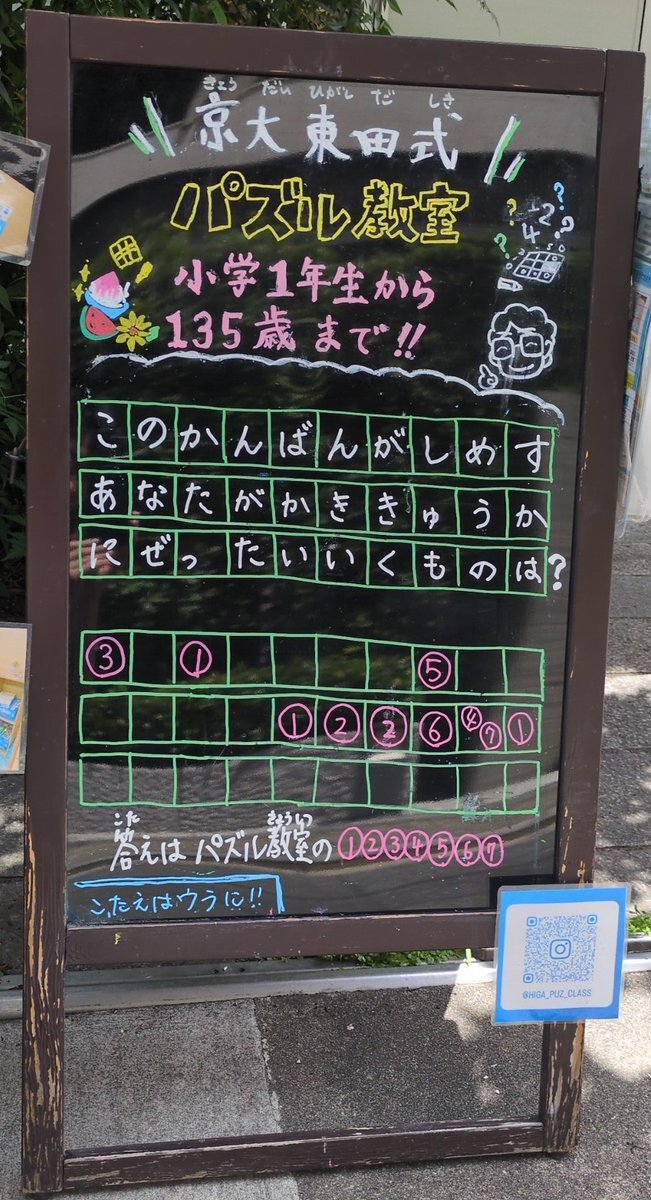 きょう だい ひがし だ しき
京大東田式
パズル教室
小学1年生から
135歳まで!!
このかんばんがしめす
あなたがかききゅうか
にぜったいいくものは?
③ ① ⑤
① ② ② ⑥ ④⑦ ①
こた きょうしつ
答えは パズル教室の①②③④⑤⑥⑦
こたえはウラに!!
@HIGA_PUZ_CLASS